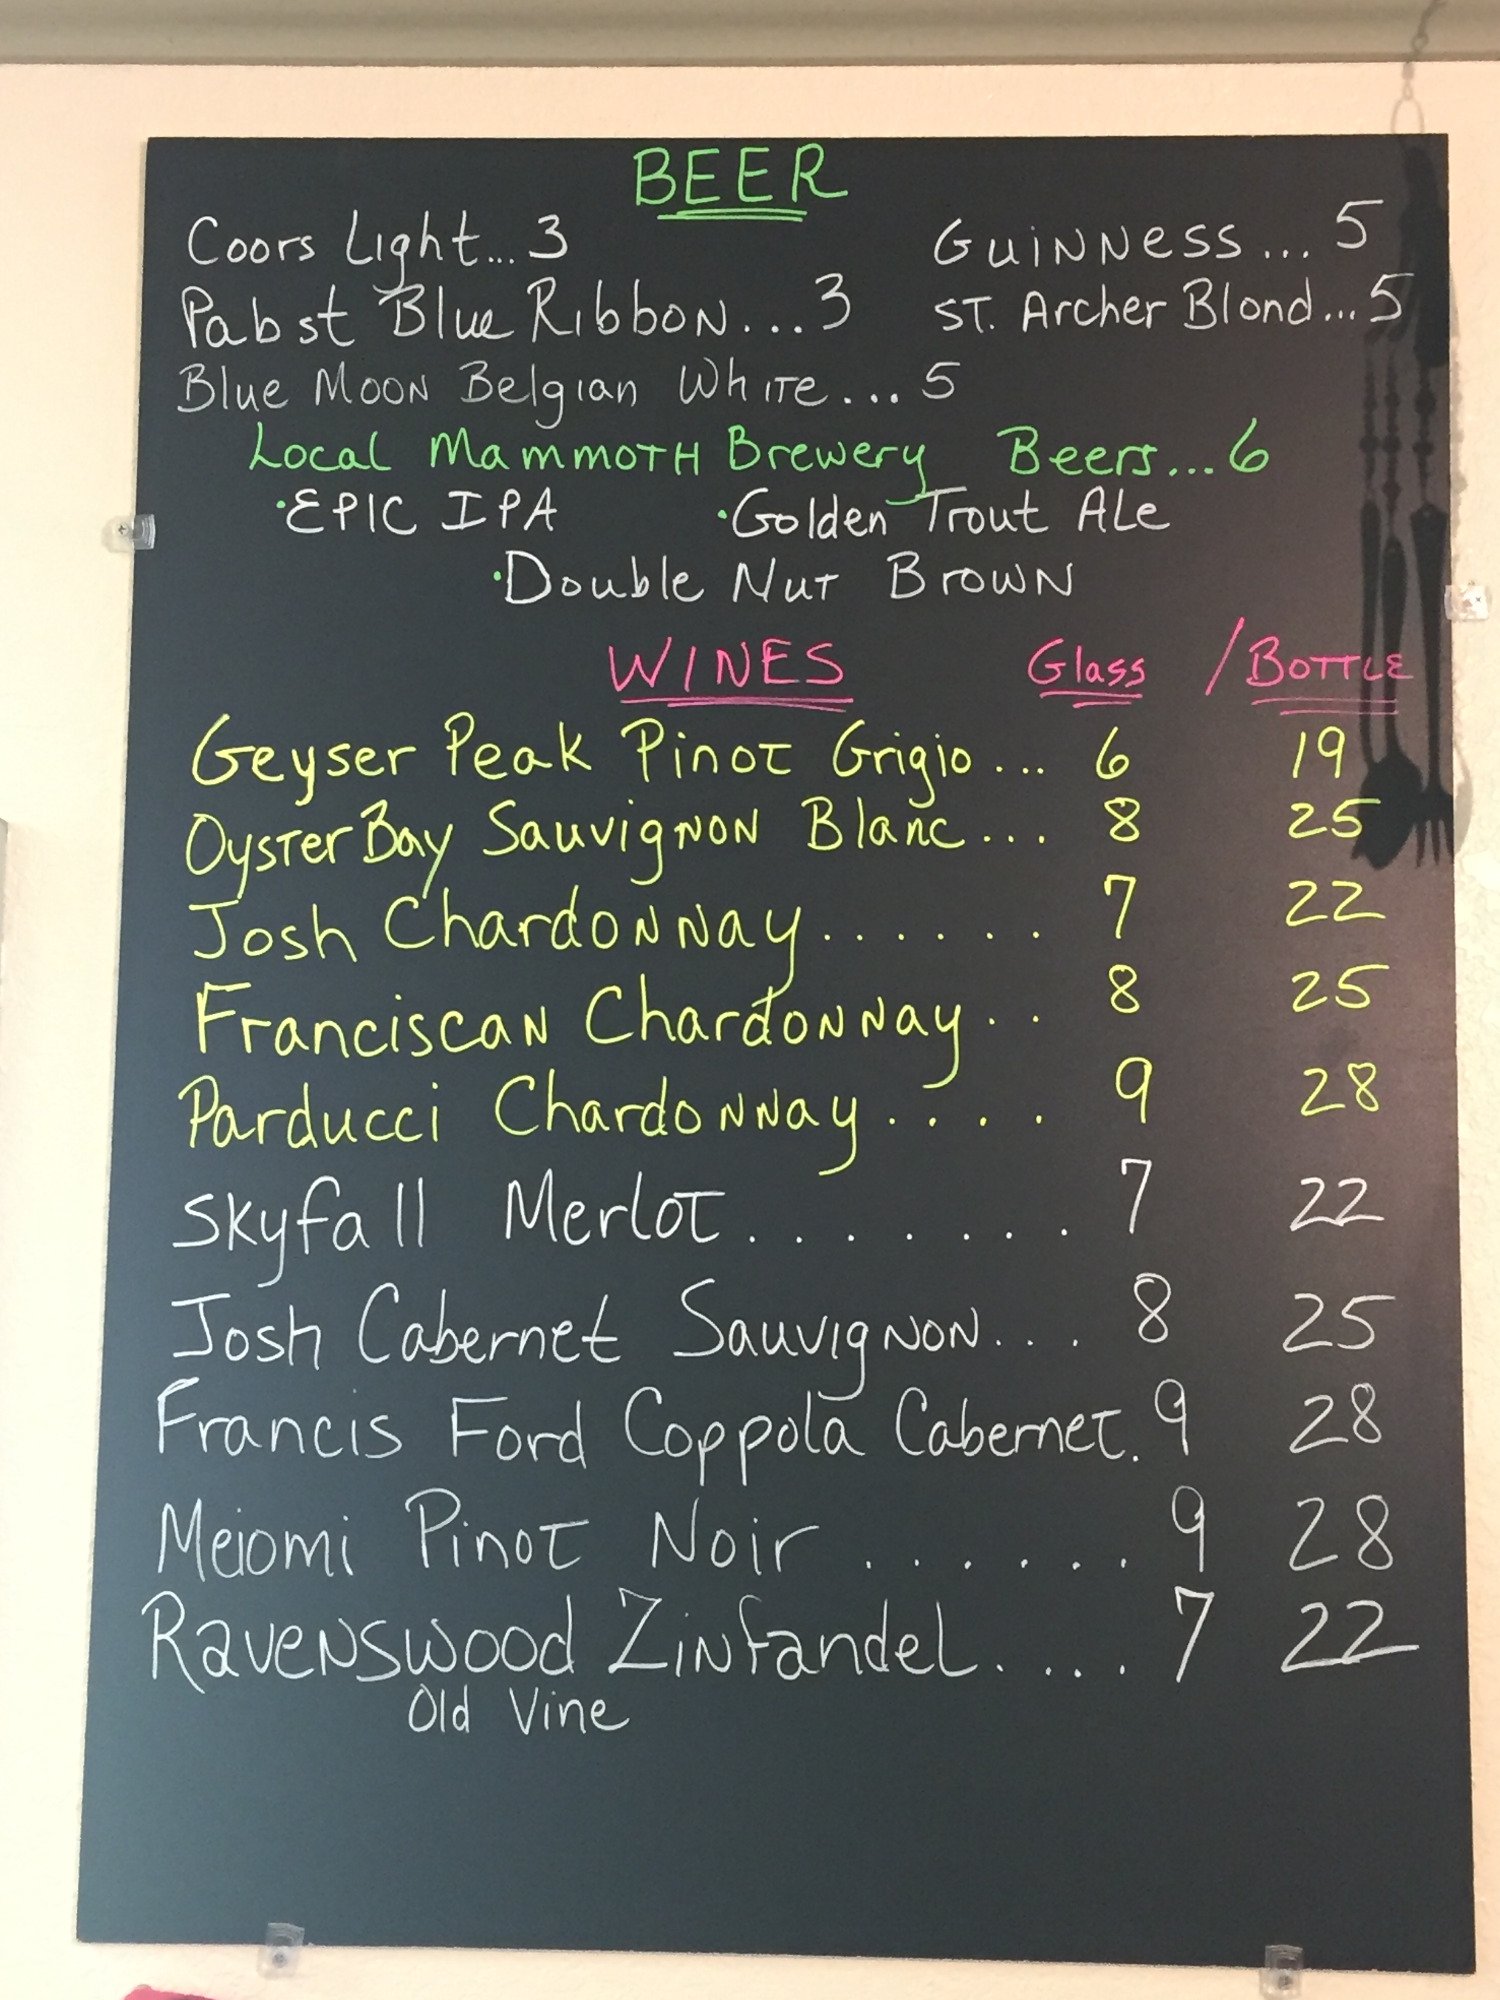 BEER
Coors Light... 3 Guinness... 5
Pabst Blue Ribbon... 3 St. Archer Blond... 5
Blue Moon Belgian White... 5
Local Mammoth Brewery Beers... 6
·EPIC IPA ·Golden Trout Ale
·Double Nut Brown
WINES Glass / Bottle
Geyser Peak Pinot Grigio... 6 19
Oyster Bay Sauvignon Blanc... 8 25
Josh Chardonnay...... 7 22
Franciscan Chardonnay.. 8 25
Parducci Chardonnay.... 9 28
Skyfall Merlot....... 7 22
Josh Cabernet Sauvignon... 8 25
Francis Ford Coppola Cabernet. 9 28
Meiomi Pinot Noir...... 9 28
Ravenswood Zinfandel.... 7 22
Old Vine